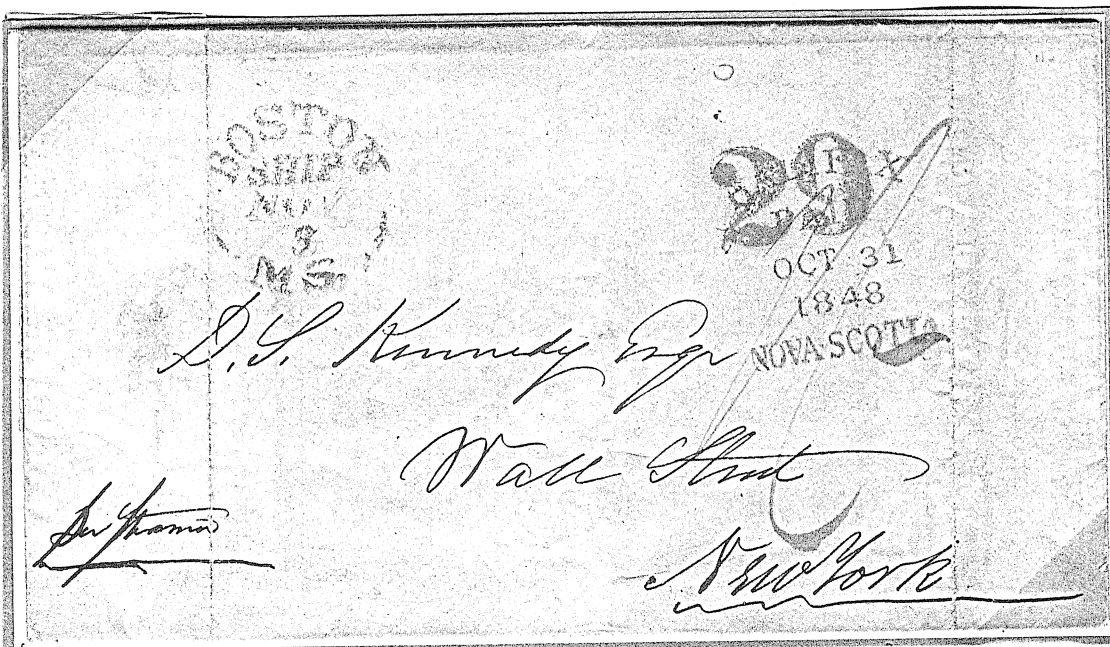 BOSTON
SHIP
NOV
3
MS.
29
HALIFAX
PAID
OCT 31
1848
NOVA·SCOTIA
D. S. Kennedy Esqr
Wall Street
New York
Per Steamer